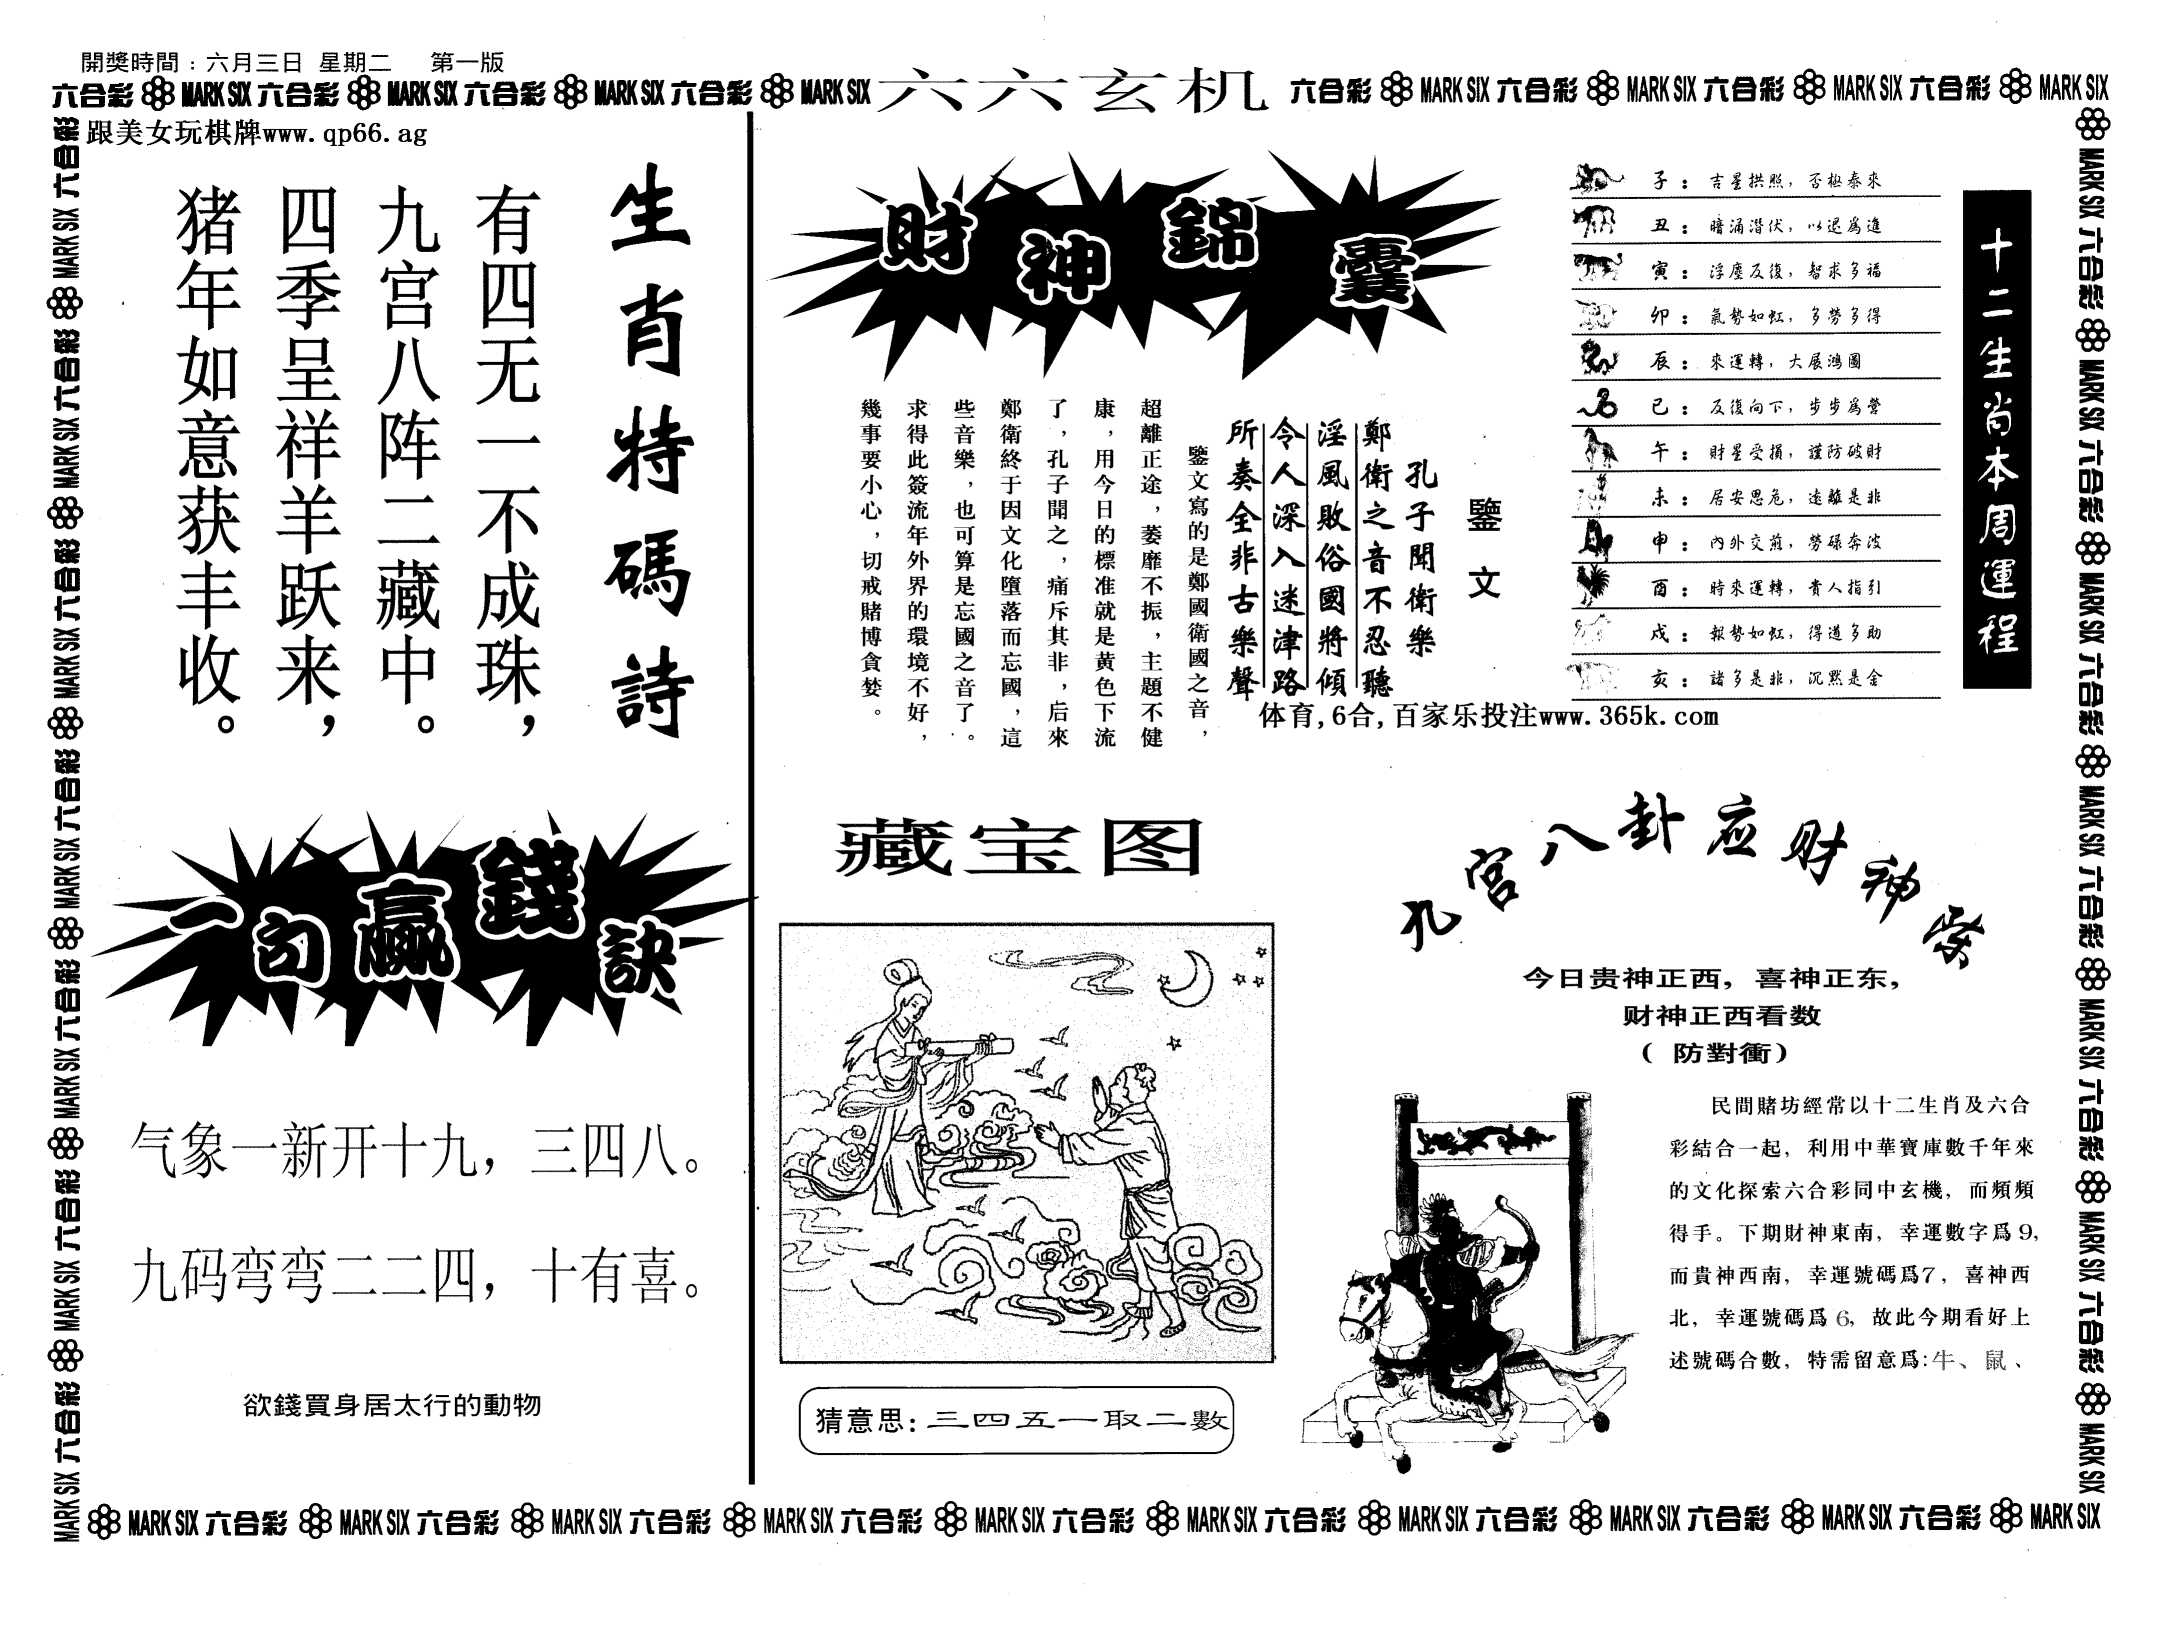 開獎時間：六月三日 星期二 第一版
六合彩 MARK SIX 六合彩 MARK SIX 六合彩 MARK SIX 六合彩 MARK SIX
六六玄机
六合彩 MARK SIX 六合彩 MARK SIX 六合彩 MARK SIX 六合彩 MARK SIX
跟美女玩棋牌www.qp66.ag
生肖特碼詩
有四无一不成珠，
九宫八阵二藏中。
四季呈祥羊跃来，
猪年如意获丰收。
一句贏錢訣
气象一新开十九，三四八。
九码弯弯二二四，十有喜。
欲錢買身居太行的動物
財神錦囊
鑒文
孔子聞衛樂
鄭衛之音不忍聽
淫風敗俗國將傾
令人深入迷津路
所奏全非古樂聲
鑒文寫的是鄭國衛國之音，
超離正途，萎靡不振，主題不健
康，用今日的標准就是黄色下流
了，孔子聞之，痛斥其非，后來
鄭衛終于因文化墮落而忘國，這
些音樂，也可算是忘國之音了。
求得此簽流年外界的環境不好，
幾事要小心，切戒賭博貪婪。
十二生肖本周運程
子：吉星拱照，否極泰來
丑：暗涌潛伏，以退爲進
寅：浮塵反復，智求多福
卯：氣勢如虹，多勞多得
辰：來運轉，大展鴻圖
巳：反復向下，步步爲營
午：財星受損，謹防破財
未：居安思危，遠離是非
申：内外交煎，勞碌奔波
酉：時來運轉，貴人指引
戌：報勢如虹，得道多助
亥：諸多是非，沉默是金
体育,6合,百家乐投注www.365k.com
藏宝图
猜意思：三四五一取二數
孔宫八卦应财神
今日贵神正西，喜神正东，
财神正西看数
（ 防對衝）
民間賭坊經常以十二生肖及六合
彩結合一起，利用中華寶庫數千年來
的文化探索六合彩同中玄機，而頻頻
得手。下期財神東南，幸運數字爲9，
而貴神西南，幸運號碼爲7，喜神西
北，幸運號碼爲6，故此今期看好上
述號碼合數，特需留意爲:牛、鼠、
MARK SIX 六合彩 MARK SIX 六合彩 MARK SIX 六合彩 MARK SIX 六合彩 MARK SIX 六合彩 MARK SIX 六合彩 MARK SIX 六合彩
MARK SIX 六合彩 MARK SIX 六合彩 MARK SIX 六合彩 MARK SIX 六合彩 MARK SIX 六合彩 MARK SIX 六合彩 MARK SIX
MARK SIX 六合彩 MARK SIX 六合彩 MARK SIX 六合彩 MARK SIX 六合彩 MARK SIX 六合彩 MARK SIX 六合彩 MARK SIX 六合彩 MARK SIX 六合彩 MARK SIX 六合彩 MARK SIX